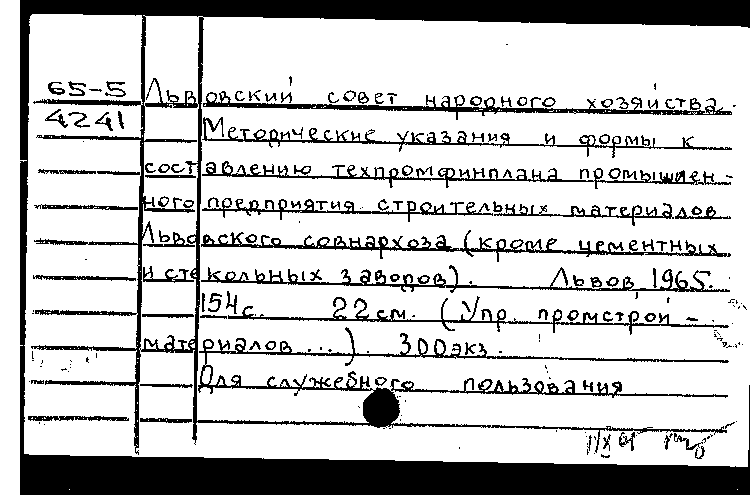 65-5 Львовский совет народного хозяйства.
4241 Методические указания и формы к
составлению техпромфинплана промышлен-
ного предприятия строительных материалов
Львовского совнархоза (кроме цементных
и стекольных заводов). Львов, 1965.
154 с. 22 см. (Упр. промстрой-
материалов ...). 300 экз.
Для служебного пользования